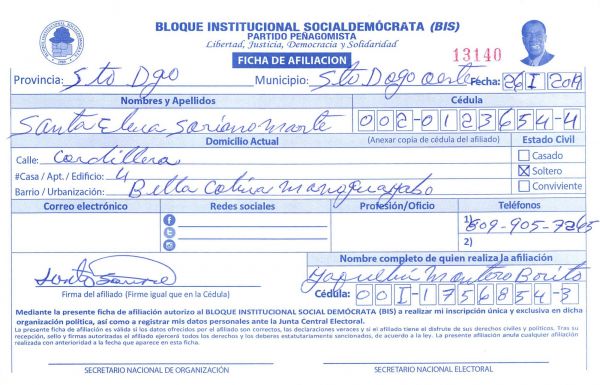 BLOQUE INSTITUCIONAL SOCIALDEMÓCRATA (BIS)
PARTIDO PEÑAGOMISTA
Libertad, Justicia, Democracia y Solidaridad
FICHA DE AFILIACION
13140
Provincia: Sto Dgo Municipio: Sto Dogo oeste Fecha: 26 I 2019
Nombres y Apellidos Cédula
Santa Elena Soriano Marte 002-0123654-4
Domicilio Actual (Anexar copia de cédula del afiliado) Estado Civil
Calle: Cordillera Casado
#Casa / Apt. / Edificio: 4 Soltero
Barrio / Urbanización: Bella Colina Manoguayabo Conviviente
Correo electrónico Redes sociales Profesión/Oficio Teléfonos
1) 809-905-7265
2)
Nombre completo de quien realiza la afiliación
Yaquelin Montero
Firma del afiliado (Firme igual que en la Cédula) Cédula: 001-1756854-3
Mediante la presente ficha de afiliación autorizo al BLOQUE INSTITUCIONAL SOCIAL DEMÓCRATA (BIS) a realizar mi inscripción única y exclusiva en dicha
organización política, así como a registrar mis datos personales ante la Junta Central Electoral.
La presente ficha de afiliación es válida si los datos ofrecidos por el afiliado son correctos, las declaraciones veraces y si el afiliado tiene el disfrute de sus derechos civiles y políticos. Tras su
recepción, sello y firmas autorizadas el afiliado ejercerá todos los derechos y los deberes estatutariamente sancionados, de acuerdo a la ley. La presente afiliación anula cualquier afiliación
realizada con anterioridad a la fecha que aparece en esta ficha.
SECRETARIO NACIONAL DE ORGANIZACIÓN SECRETARIO NACIONAL ELECTORAL